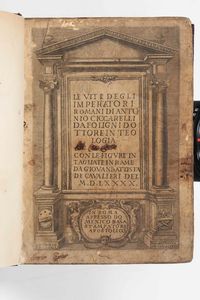 LE VITE DEGLI
IMPERATORI
ROMANI DI ANTO
NIO CICCARELLI
DA FOLIGNI DO
TTORE IN TEO
LOGIA
CON LE FIGURE IN
TAGLIATE IN RAME
DA GIOVAN BATTISTA
DE CAVALIERI DEL
M.D.LXXXX.
IN ROMA
APRESSO DO
MENICO BASA
STAMPATORE
APOSTOLICO